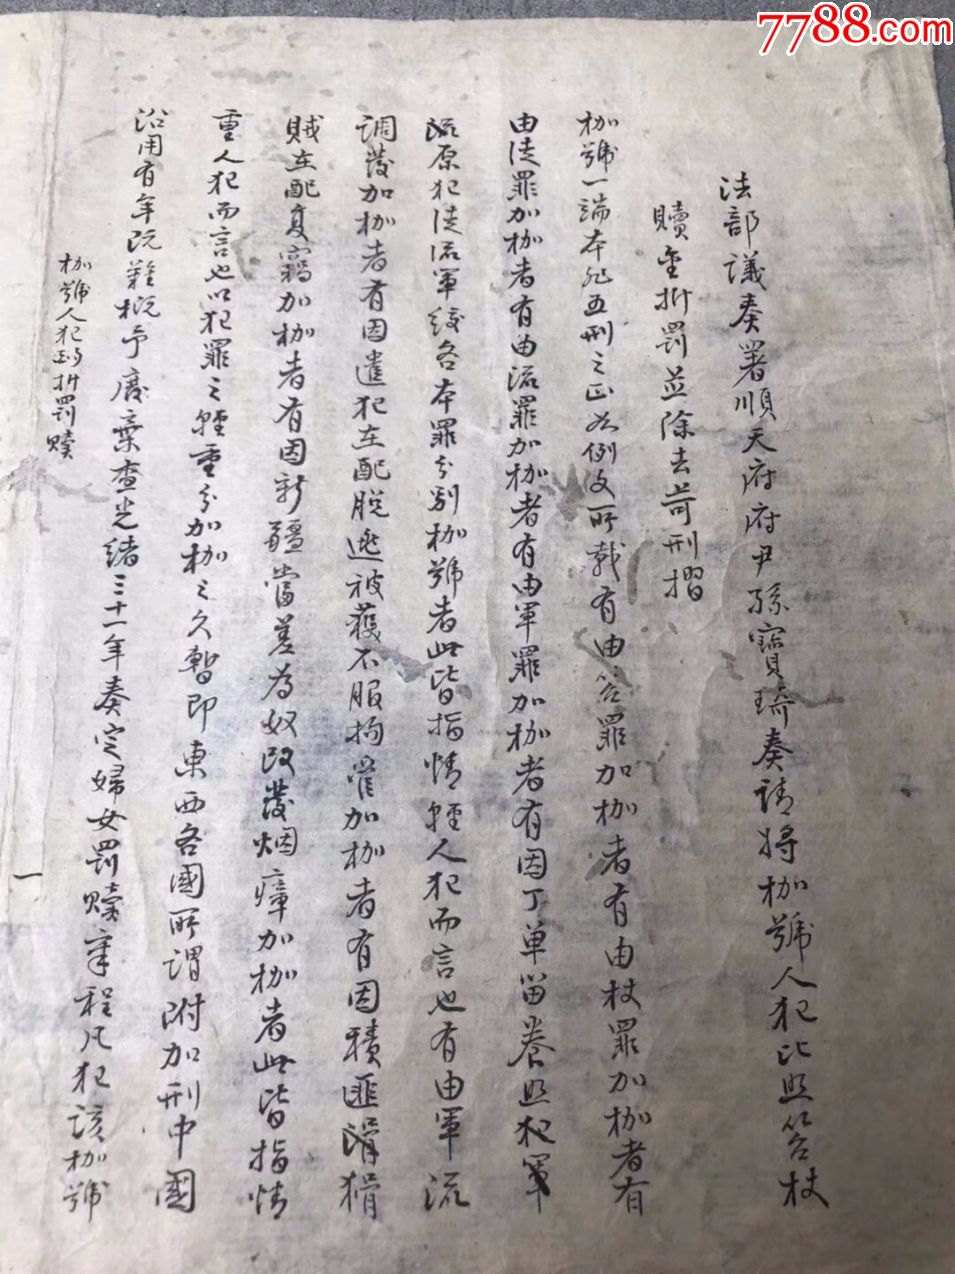 7788.com
法部議奏署順天府府尹孫寶琦奏請將枷號人犯比照笞杖
贖金折罰並除去苛刑摺
枷號一端本非五刑之正考例文所載有由笞罪加枷者有由杖罪加枷者有
由徒罪加枷者有由流罪加枷者有由軍罪加枷者有因丁單留養照犯軍
流原犯徒流軍絞各本罪分别枷號者此皆指情輕人犯而言也有由軍流
調發加枷者有因遣犯在配脱逃被獲不服拘管加枷者有因積匪猾
賊在配复竊加枷者有因新疆當差為奴改發烟瘴加枷者此皆指情
重人犯而言也以犯罪之輕重分加枷之久暫即東西各國所謂附加刑中國
沿用有年既難概予廢棄查光緒三十一年奏定婦女罰贖章程凡犯該枷號
枷號人犯酌折罰贖
一